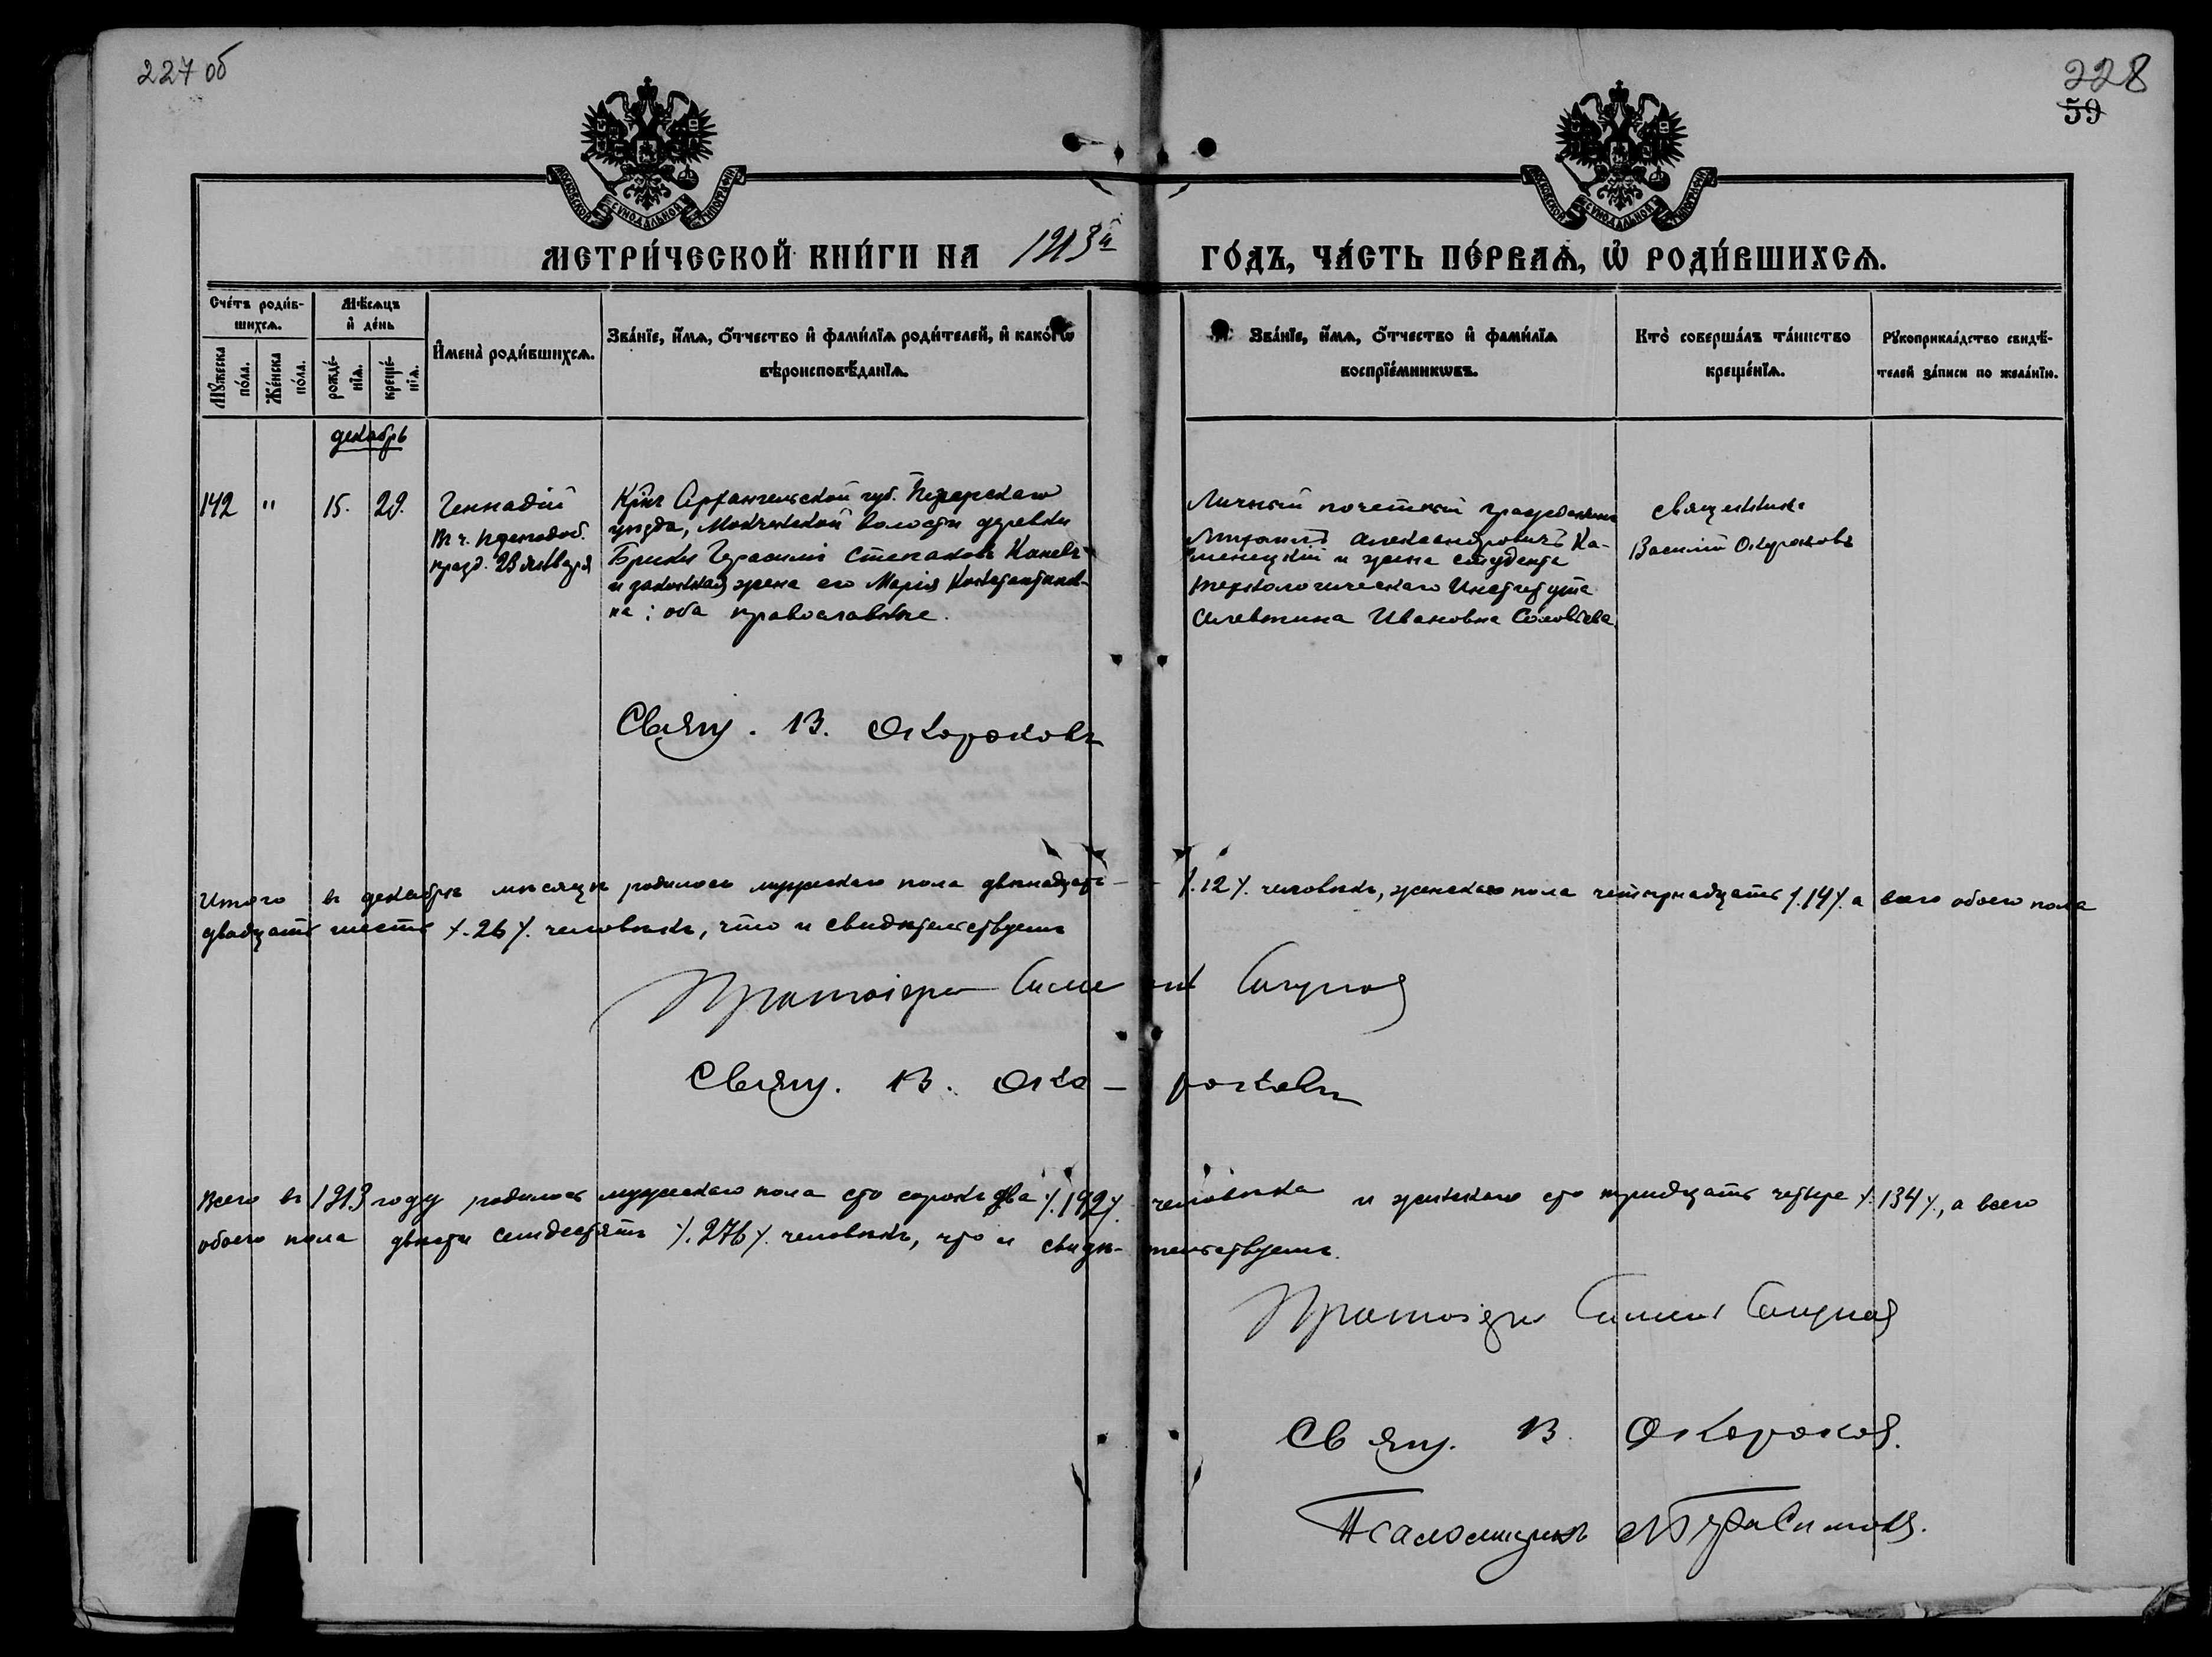 227 об
228
59
МОСКОВСКОЙ СѴНОДАЛЬНОЙ ТИПОГРАФІИ
МОСКОВСКОЙ СѴНОДАЛЬНОЙ ТИПОГРАФІИ
МЕТРИ́ЧЕСКОЙ КНИ́ГИ НА 1913й ГО́ДЪ, ЧА́СТЬ ПЕ́РВАѦ, Ѡ҆ РОДИ́ВШИХСѦ.
Сче́тъ роди́в-
шихсѧ.
Мꙋ́жеска
по́ла.
Же́нска
по́ла.
Мѣ́сѧцъ
и҆ де́нь
рожде́-
нїѧ.
креще́-
нїѧ.
И҆мена̀ роди́вшихсѧ.
Зва́нїе, и҆́мѧ, ѻ҆́тчество и҆ фами́лїѧ роди́телей, и҆ како́гѡ
вѣроисповѣ́данїѧ.
Зва́нїе, и҆́мѧ, ѻ҆́тчество и҆ фами́лїѧ
воспрїе́мникѡвъ.
Кто̀ соверша́лъ та́инство
креще́нїѧ.
Рꙋкоприкла́дство свидѣ́-
телей за́писи по жела́нїю.
декабрь
142 " 15. 29.
Геннадій
празд. 23 января
Крнъ Архангельской губ. Печерскаго
уѣзда, Мохченской волости деревни
Герасимъ Степановъ Каневъ
и законная жена его Марія Константинов-
на: оба православные.
Личный почетный гражданинъ
Митрофанъ Александровичъ Ка-
менецкій и жена студента
технологическаго Института
Алевтина Ивановна Соловьева
Священникъ
Василій Окороковъ
Свящ. В. Окороковъ
Итого въ декабрѣ мѣсяцѣ родилось мужескаго пола двѣнадцать ⁒12⁒ человѣкъ, женскаго пола четырнадцать ⁒14⁒ а всего обоего пола
двадцать шесть ⁒26⁒ человѣкъ, что и свидѣтельствуемъ
Протоіерей Симеонъ
Свящ. В. Око- роковъ
Всего въ 1913 году родилось мужескаго пола сто сорокъ два ⁒142⁒ человѣка и женскаго сто тридцать четыре ⁒134⁒, а всего
обоего пола двѣсти семьдесятъ ⁒276⁒ человѣкъ, что и свидѣ- тельствуемъ.
Протоіерей Симеонъ
Свящ. В. Окороковъ.
Псаломщикъ